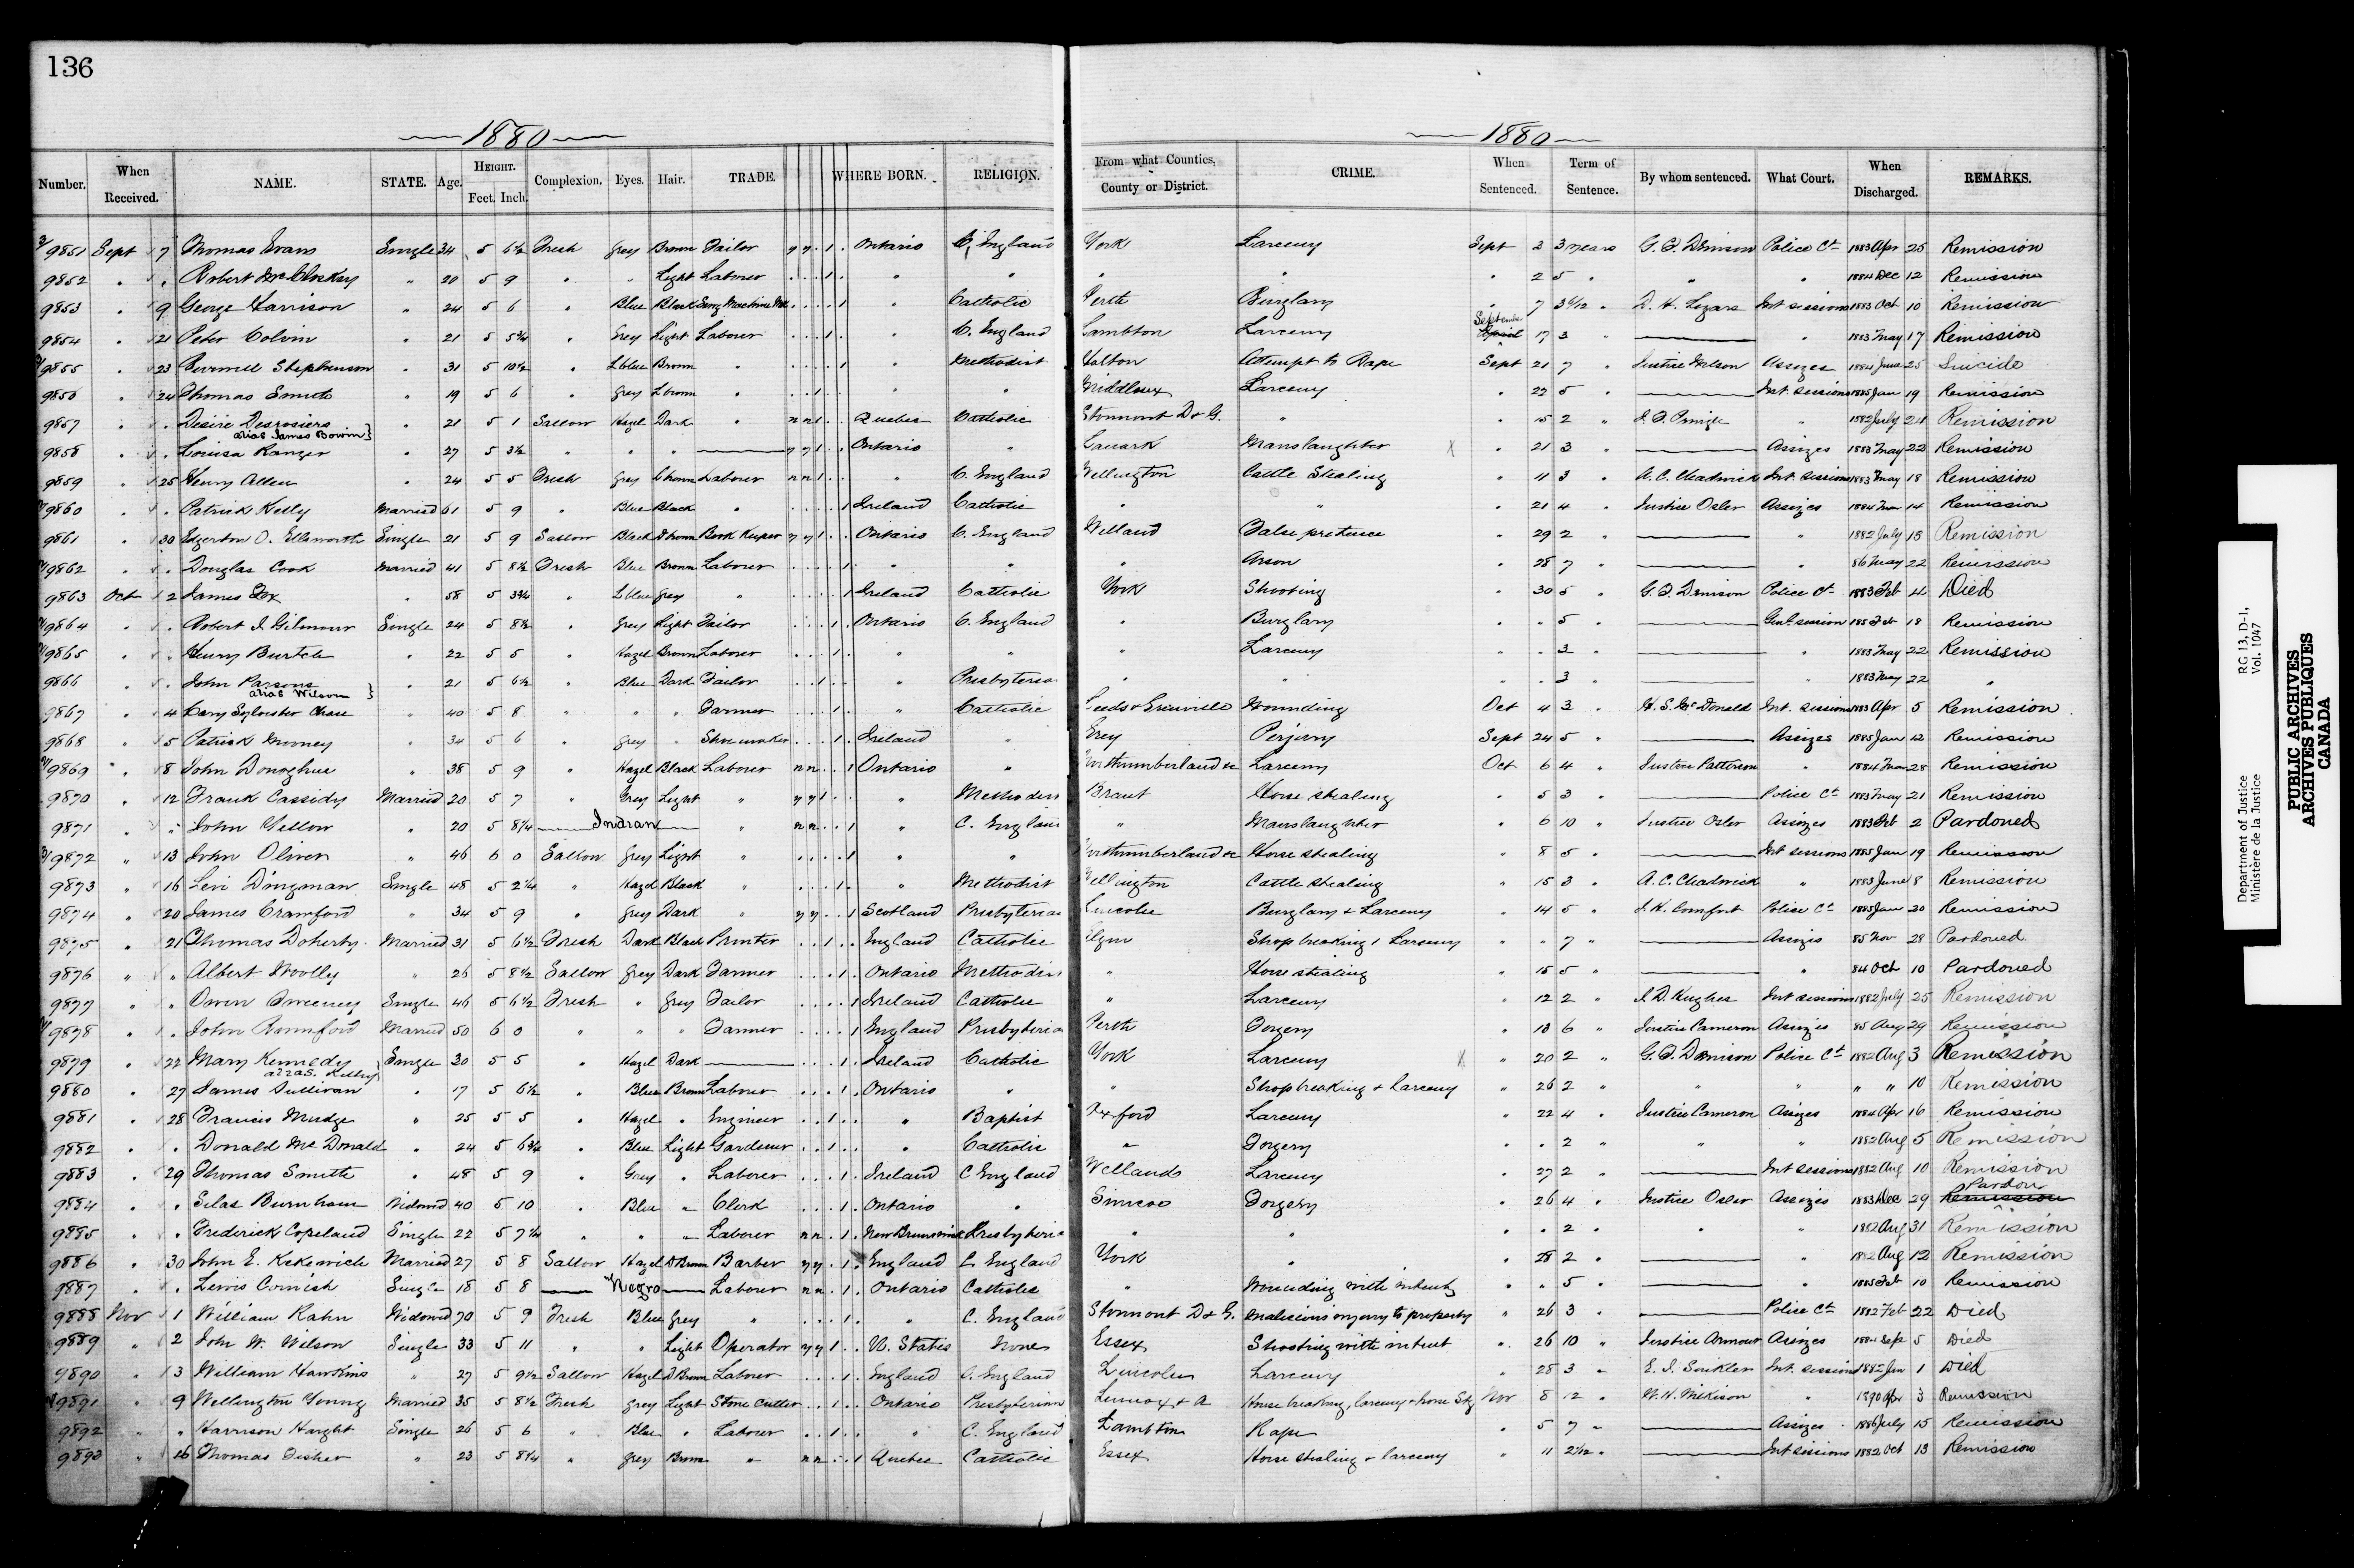 136
1880
1880
Number. When Received. NAME. STATE. Age. HEIGHT. Feet. Inch. Complexion. Eyes. Hair. TRADE. WHERE BORN. RELIGION. From what Counties, County or District. CRIME. When Sentenced. Term of Sentence. By whom sentenced. What Court. When Discharged. REMARKS.
9851 Sept 7 Thomas Evans Single 34 5 6½ Fresh Grey Brown Tailor y y . 1 . Ontario C. England York Larceny Sept 2 3 years G. T. Denison Police Ct 1883 Apr 25 Remission
9852 " . Robert McCloskey " 20 5 9 " " Light Laborer . . . 1 . " " " " " 2 5 " " " 1884 Dec 12 Remission
9853 " 9 George Harrison " 24 5 6 " Blue Black Sewg Machine . . . . 1 " Catholic Perth Burglary " 7 3 6/12 " D. H. Lizars Int sessions 1883 Oct 10 Remission
9854 " 21 Peter Colvin " 21 5 5¾ " Grey Light Laborer . . . 1 . " C. England Lambton Larceny September 17 3 " " 1883 May 17 Remission
9855 " 23 Stephenson " 31 5 10½ " L blue Brown " . . . . 1 " Methodist Halton Attempt to Rape Sept 21 7 " Justice Wilson Assizes 1884 June 25 Suicide
9856 " 24 Thomas Smith " 19 5 6 " Grey L brown " . . 1 " " Middlesex Larceny " 22 5 " Int. sessions 1885 Jan 19 Remission
9857 " . Desire Desrosiers alias James Bowin } " 21 5 1 Sallow Hazel Dark " n n 1 . . Quebec Catholic Stormont D & G. " " 15 2 " J. F. Pringle " 1882 July 24 Remission
9858 " . Louisa Ranger " 27 5 3½ " " " y y 1 . . Ontario " Lanark Manslaughter X " 21 3 " Assizes 1883 May 22 Remission
9859 " 25 Henry Allen " 24 5 5 Fresh Grey L brown Laborer n n 1 . . " C. England Wellington Cattle Stealing " 11 3 " A. C. Chadwick Int. Sessions 1883 May 18 Remission
9860 " . Patrick Kelly Married 61 5 9 " Blue Black " . . . . 1 Ireland Catholic " " " 21 4 " Justice Osler Assizes 1884 Mar 14 Remission
9861 " 30 Edgerton O. Ellsworth Single 21 5 9 Sallow Black D brown Book Keeper y y 1 . . Ontario C. England Welland False pretence " 29 2 " " 1882 July 13 Remission
9862 " . Douglas Cook Married 41 5 8½ Fresh Blue Brown Laborer . . . . 1 . " " " Arson " 28 7 " " 86 May 22 Remission
9863 Oct 2 James Fox " 58 5 3¾ " L blue Grey " . . . . 1 Ireland Catholic York Shooting " 30 5 " G. T. Denison Police Ct 1883 Feb 4 Died
9864 " . Robert J Gilmour Single 24 5 8½ " Grey Light Tailor . . . 1 . Ontario C. England " Burglary " " 5 " Genl. session 185 Feb 18 Remission
9865 " . Henry Burtch " 22 5 5 " Hazel Brown Laborer . . . 1 . " " " Larceny " . 3 " " 1883 May 22 Remission
9866 " . John Parsons alias Wilson } " 21 5 6½ " Blue Dark Tailor . . 1 . . " Presbyteria " " " . 3 " " 1883 May 22 "
9867 " 4 Cary Sylvester Chase " 40 5 8 " " " Farmer . . . 1 . " Catholic Leeds & Grenville Wounding Oct 4 3 " H. S. McDonald Int. sessions 1883 Apr 5 Remission
9868 " 5 Patrick Mooney " 34 5 6 " Grey " Shoemaker . . . 1 . Ireland " Grey Perjury Sept 24 5 " Assizes 1885 Jan 12 Remission
9869 " 8 John Donoghue " 38 5 9 " Hazel Black Laborer n n . . 1 Ontario " Northumberland &c Larceny Oct 6 4 " Justice Patterson " 1884 Mar 28 Remission
9870 " 12 Frank Cassidy Married 20 5 7 " Grey Light " y y 1 . . " Methodist Brant Horse stealing " 5 3 " Police Ct 1883 May 21 Remission
9871 " " John Yellow " 20 5 8¼ Indian " n n . . 1 " C. England " Manslaughter " 6 10 " Justice Osler Assizes 1883 Feb 2 Pardoned
9872 " 13 John Oliver " 46 6 0 Sallow Grey Light " . . . . 1 " " Northumberland &c Horse stealing " 8 5 " Int sessions 1885 Jan 19 Remission
9873 " 16 Levi Dingman Single 48 5 2¼ " Hazel Black " . . . 1 . " Methodist Wellington Cattle stealing " 15 3 " A. C. Chadwick " 1883 June 8 Remission
9874 " 20 James Crawford " 34 5 9 " Grey Dark " y y . . 1 Scotland Presbyterian Lincoln Burglary & Larceny " 14 5 " J. H. Comfort Police Ct 1885 Jan 20 Remission
9875 " 21 Thomas Doherty Married 31 5 6½ Fresh Dark Black Printer . . 1 . . England Catholic Elgin Shop breaking & Larceny " " 7 " Assizes 85 Nov 28 Pardoned
9876 " " Albert Woolly " 26 5 8½ Sallow Grey Dark Farmer . . . 1 . Ontario Methodist " Horse stealing " 15 5 " " 84 Oct 10 Pardoned
9877 " " Owen Sweeney Single 46 5 6½ Fresh " Grey Tailor . . . . 1 Ireland Catholic " Larceny " 12 2 " J. D. Hughes Int sessions 1882 July 25 Remission
9878 " . John Married 50 6 0 " " " Farmer . . . . 1 England Presbyterian Perth Forgery " 13 6 " Justice Cameron Assizes 85 Aug 29 Remission
9879 " 22 Mary Kennedy alias Kelley } Single 30 5 5 " Hazel Dark . . . 1 . Ireland Catholic York Larceny X " 20 2 " G. T. Denison Police Ct 1882 Aug 3 Remission
9880 " 27 James Sullivan " 17 5 6½ " Blue Brown Laborer . . . 1 . Ontario " " Shop breaking & Larceny " 26 2 " " " " " 10 Remission
9881 " 28 Francis Mudge " 25 5 5 " Hazel " Engineer . . 1 . . " Baptist Oxford Larceny " 22 4 " Justice Cameron Assizes 1884 Apr 16 Remission
9882 " . Donald McDonald " 24 5 6¾ " Blue Light Gardener . . 1 . . " Catholic " Forgery " . 2 " " " 1882 Aug 5 Remission
9883 " 29 Thomas Smith " 48 5 9 " Grey " Laborer . . . 1 . Ireland C England Welland Larceny " 27 2 " Int sessions 1882 Aug 10 Remission
9884 " " Silas Burnham Widowed 40 5 10 " Blue " Clerk . . . 1 . Ontario " Simcoe Forgery " 26 4 " Justice Osler Assizes 1883 Dec 29 Remission Pardon
9885 " " Frederick Copeland Single 22 5 7¼ " " " Laborer n n . 1 . New Brunswick Presbyteria " " " . 2 " " " 1882 Aug 31 Remission
9886 " 30 John E. Kekewich Married 27 5 8 Sallow Hazel D Brown Barber y y . 1 . England C England York " " 28 2 " " 1882 Aug 12 Remission
9887 " . Lewis Cornish Single 18 5 8 Negro Laborer n n . 1 . Ontario Catholic " Wounding with intent " " 5 " " 1885 Feb 10 Remission
9888 Nov 1 William Kahn Widowed 70 5 9 Fresh Blue Grey " . . . 1 . " C. England Stormont D & G. Malicious injury to property " 26 3 " Police Ct 1882 Feb 22 Died
9889 " 2 John W. Wilson Single 33 5 11 " " Light Operator y y 1 . . U. States None Essex Shooting with intent " 26 10 " Justice Armour Assizes 1884 Sept 5 Died
9890 " 3 William Hawkins " 27 5 9½ Sallow Hazel D Brown Laborer . . . 1 . England C. England Lincoln Larceny " 28 3 " E. J. Senkler Int. sessions 1882 Jan 1 Died
9891 " 9 Wellington Young Married 35 5 8½ Fresh Grey Light Stone Cutter . . 1 . . Ontario Presbyterian Lennox & A House breaking, larceny & horse Stg Nov 8 12 " W. H. Wilkison " 1890 Apr 3 Remission
9892 " " Harrison Haight Single 26 5 6 " Blue " Laborer . . 1 . . " C. England Lambton Rape " 5 7 " Assizes 1886 July 15 Remission
9893 " 16 Thomas Fisher " 23 5 8¼ " Grey Brown " n n . . 1 Quebec Catholic Essex Horse stealing & larceny " 11 2½ " Int sessions 1882 Oct 13 Remission
Department of Justice RG 13, D-1,
Ministère de la Justice Vol. 1047
PUBLIC ARCHIVES
ARCHIVES PUBLIQUES
CANADA